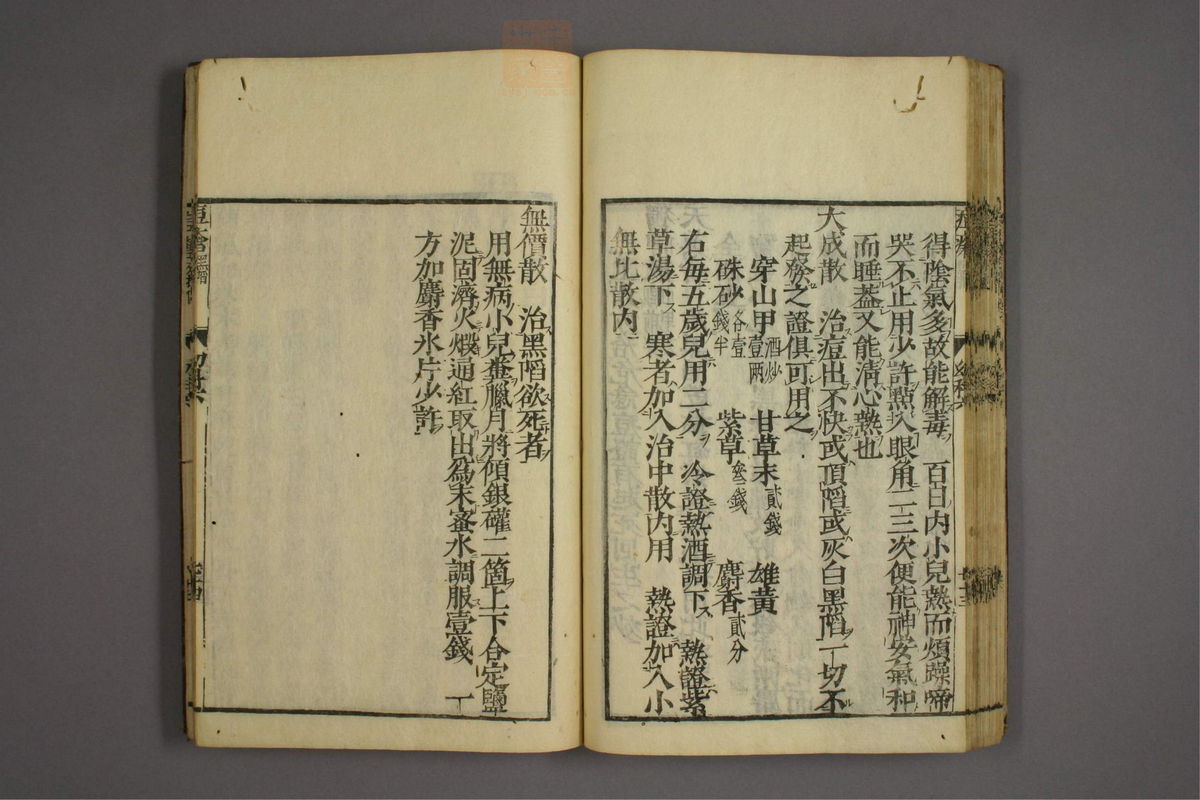 得陰氣多故能解毒 百日内小兒熱而煩躁啼
哭不止用少許點入眼角二三次便能神安氣和
而睡蓋又能清心熱也
大成散 治痘出不快或頂陷或灰白黑陷一切不
起發之證俱可用之
穿山甲酒炒壹兩 甘草末貳錢 雄黃
硃砂各壹錢半 紫草叁錢 麝香貳分
右每五歲兒用二分 冷證熱酒調下 熱證紫
草湯下 寒者加入治中散内用 熱證加入小
無比散内
無價散 治黑陷欲死者
用無病小兒糞臘月將傾銀確二箇上下合定鹽
泥固濟火煅通紅取出爲末蜜水調服壹錢 一
方加麝香氷片少許